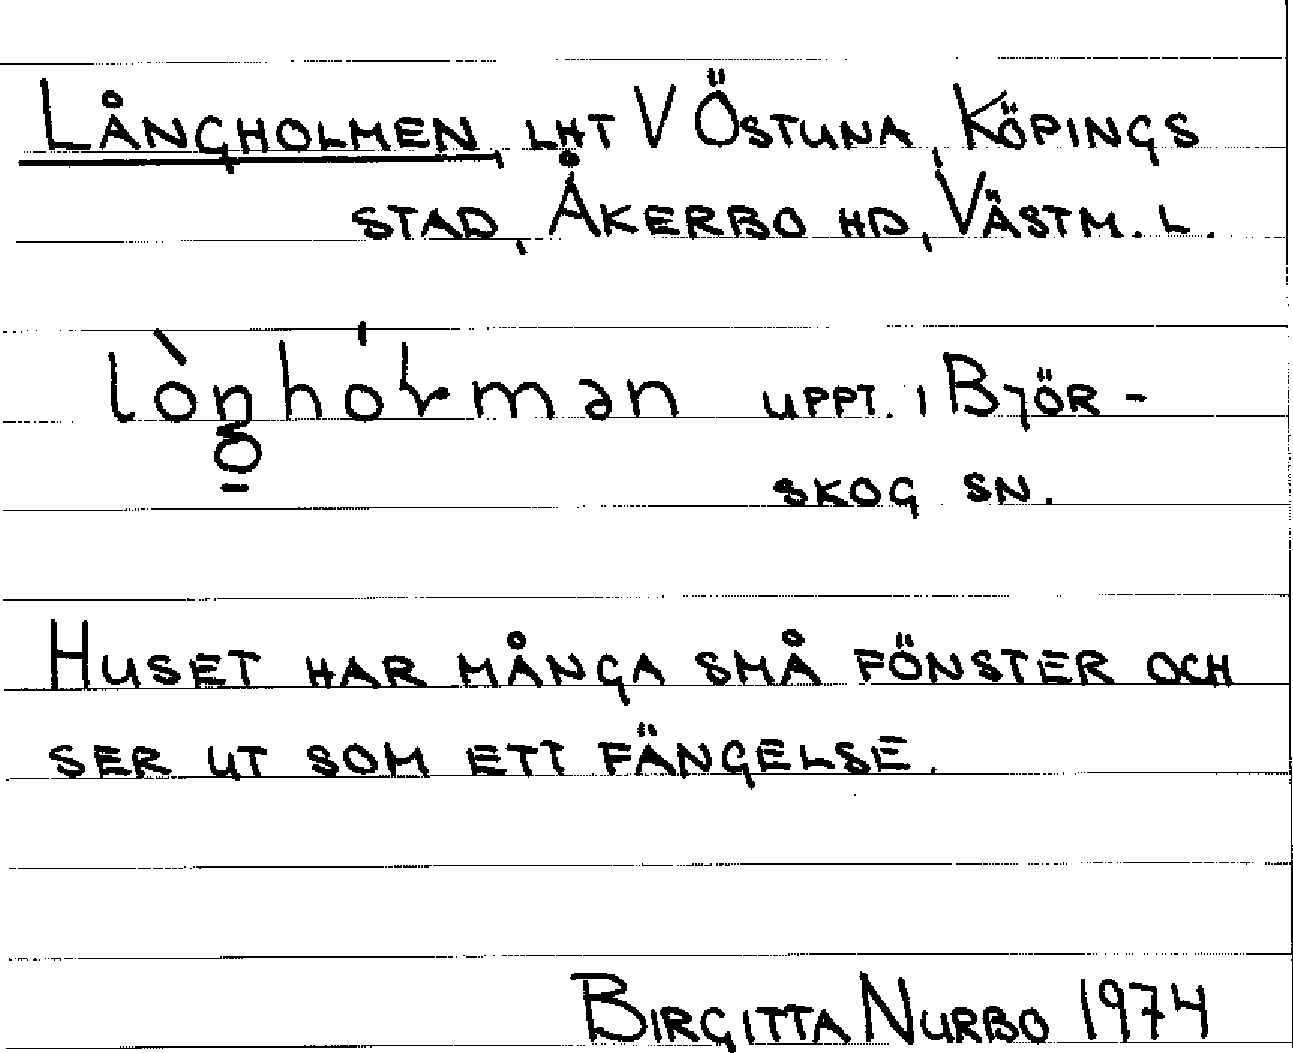 LÅNGHOLMEN, LHT V ÖSTUNA, KÖPINGS
STAD, ÅKERBO HD, VÄSTM. L.
lòŋhólmən UPPT. I BJÖR-
SKOG SN.
HUSET HAR MÅNGA SMÅ FÖNSTER OCH
SER UT SOM ETT FÄNGELSE.
BIRGITTA NURBO 1974